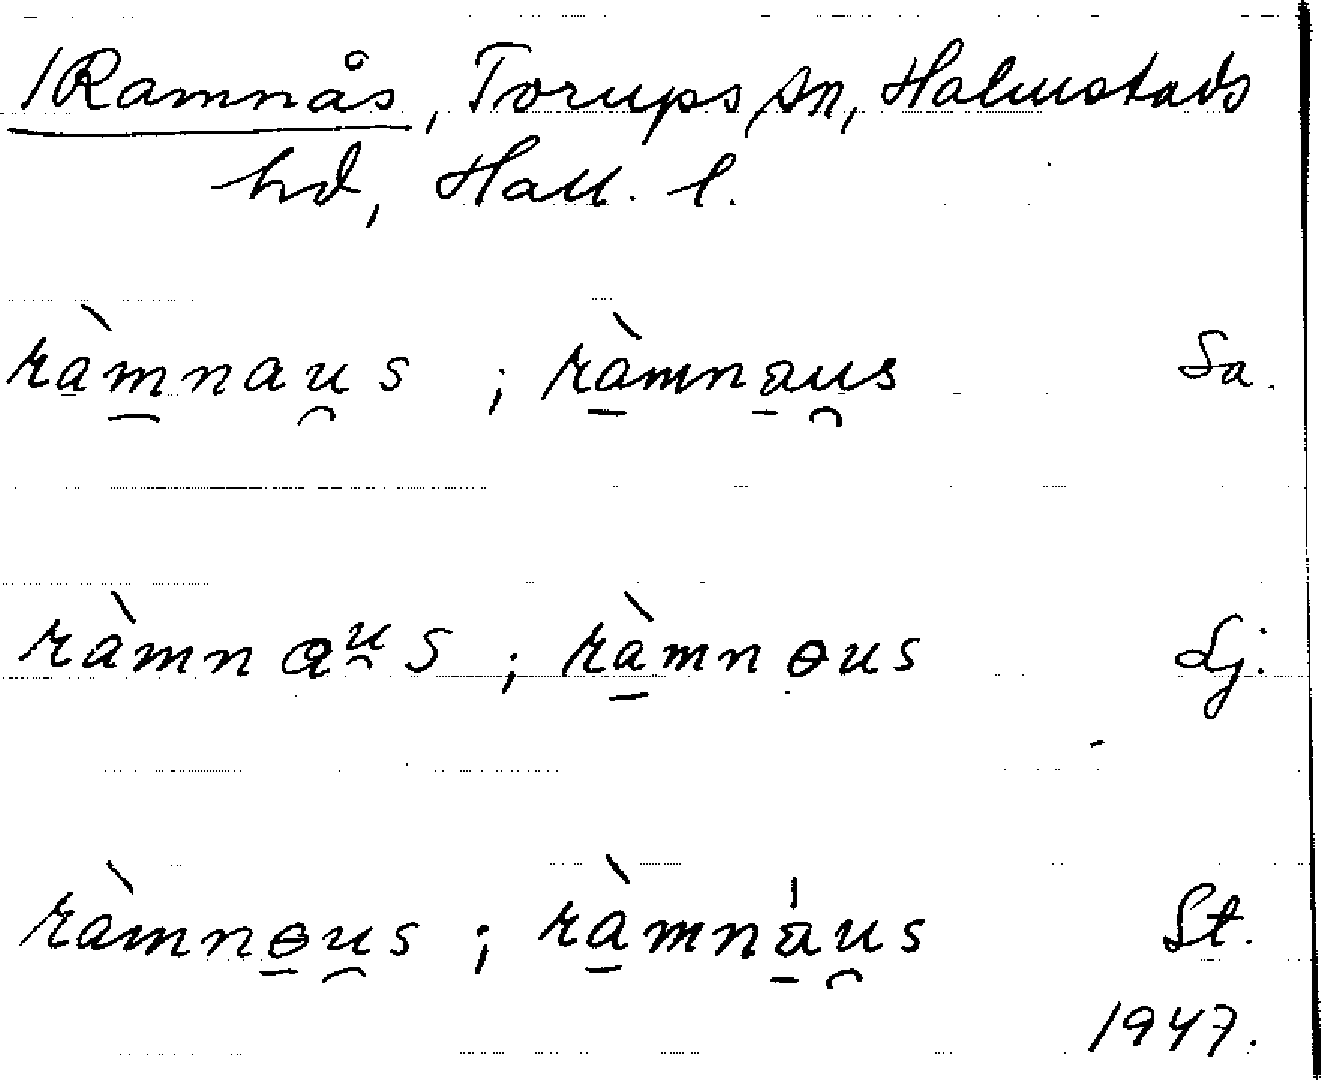 /Ramnås, Torups sn, Halmstads
hd, Hall. l.
ràmnau̯s ; ràmnau̯s Sa.
ràmnaᵘ̯s ; ràmnɵus Lj.
ràmnɵu̯s ; ràmnáu̯s St.
1947.